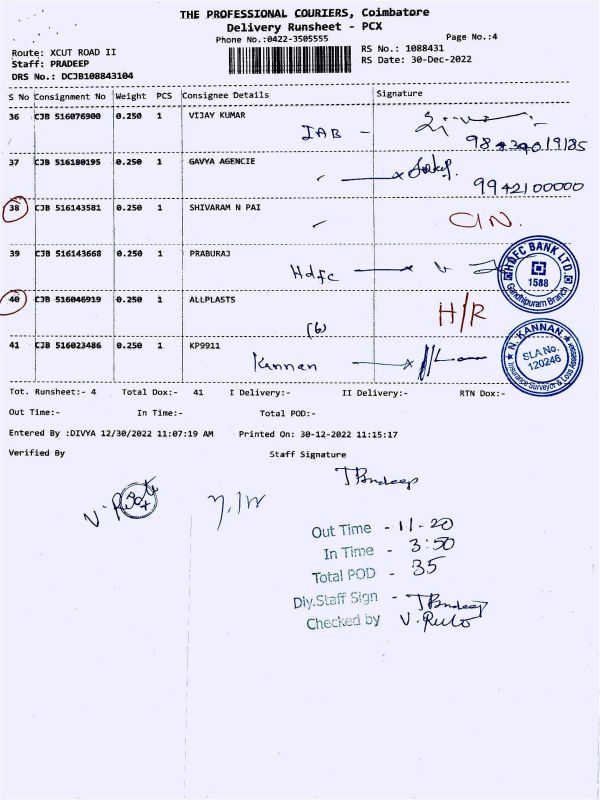 THE PROFESSIONAL COURIERS, Coimbatore
Delivery Runsheet - PCX
Phone No.:0422-3505555
Page No.:4
Route: XCUT ROAD II
RS No.: 1088431
Staff: PRADEEP
RS Date: 30-Dec-2022
DRS No.: DCJB108843104
S No Consignment No Weight PCS Consignee Details Signature
36 CJB 516076900 0.250 1 VIJAY KUMAR
IAB -
37 CJB 516180195 0.250 1 GAVYA AGENCIE
9942100000
38 CJB 516143581 0.250 1 SHIVARAM N PAI
C/N.
39 CJB 516143668 0.250 1 PRABURAJ
Hdfc
HDFC BANK LTD.
1588
Gandhipuram Branch
40 CJB 516046919 0.250 1 ALLPLASTS
H/R
(6)
41 CJB 516023486 0.250 1 KP9911
Kannan
N. KANNAN
SLA No.
120246
Insurance Surveyor & Loss Assessor
Tot. Runsheet:- 4 Total Dox:- 41 I Delivery:- II Delivery:- RTN Dox:-
Out Time:- In Time:- Total POD:-
Entered By :DIVYA 12/30/2022 11:07:19 AM Printed On: 30-12-2022 11:15:17
Verified By Staff Signature
Out Time - 11-20
In Time - 3:50
Total POD - 35
Dly.Staff Sign -
Checked by